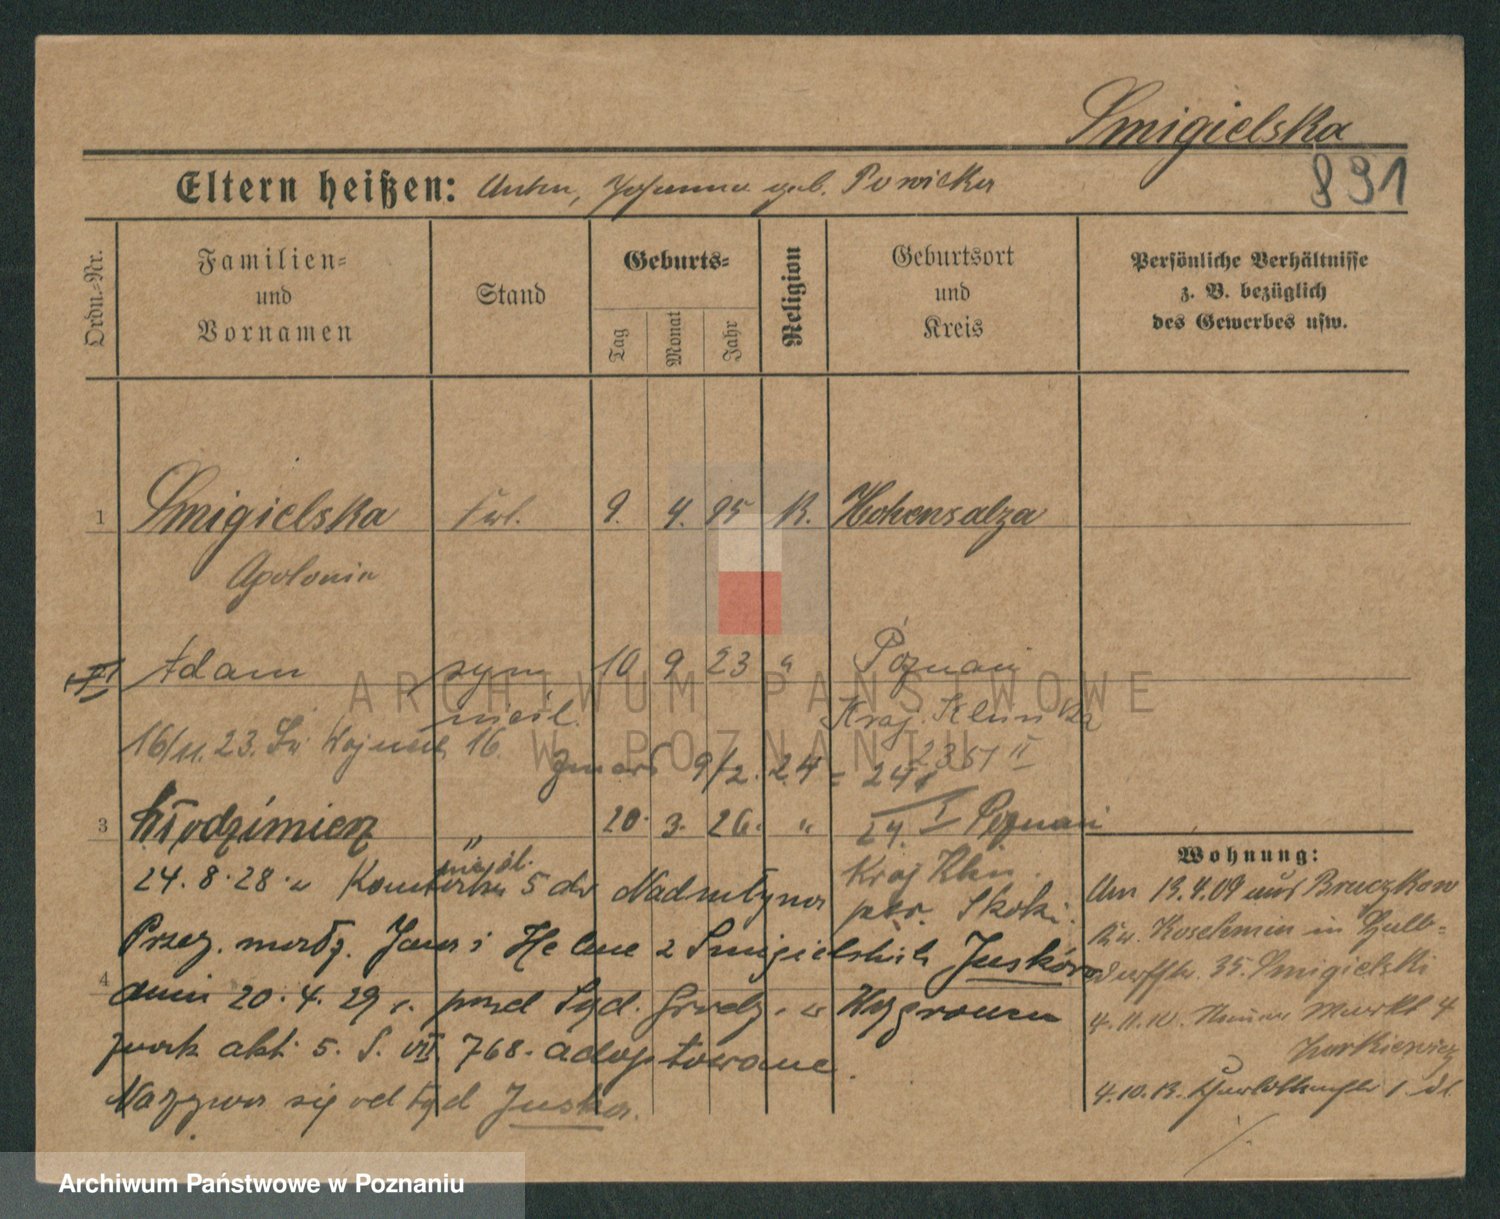 Smigielska
891
Eltern heißen: Anton, Johanna geb. Powicka
Ordn.=Nr.
Familien=
und
Vornamen
Stand
Geburts=
Tag
Monat
Jahr
Religion
Geburtsort
und
Kreis
Persönliche Verhältnisse
z. B. bezüglich
des Gewerbes usw.
1 Smigielska 9. 4. 95 K. Hohensalza
Apolonia
Adam syn 10 9 23 " Poznań
nieśl. Kraj.
16/11.23. Św Wojciech 16. 2351 II
zmarł 9/2. 24 =
3 Włodzimierz " 20. 3. 26. " Poznań
nieśl.
24.8.28. w 5 dw Kraj
pow. Skoki.
Przez. małż. Jana i Helenę z Smigielskich Jusków
4 dnia 20.4.29 r. przed Sąd. Grodz. w Wągrowcu
akt: 5. S. VII 768. adoptowane.
Nazywa się odtąd Juska.
Wohnung:
Am 13.4.09 aus
Kr. Koschmin in
35. Smigielski
4.11.10. Neuer Markt 4
4.10.13.
ARCHIWUM PAŃSTWOWE
W POZNANIU
Archiwum Państwowe w Poznaniu